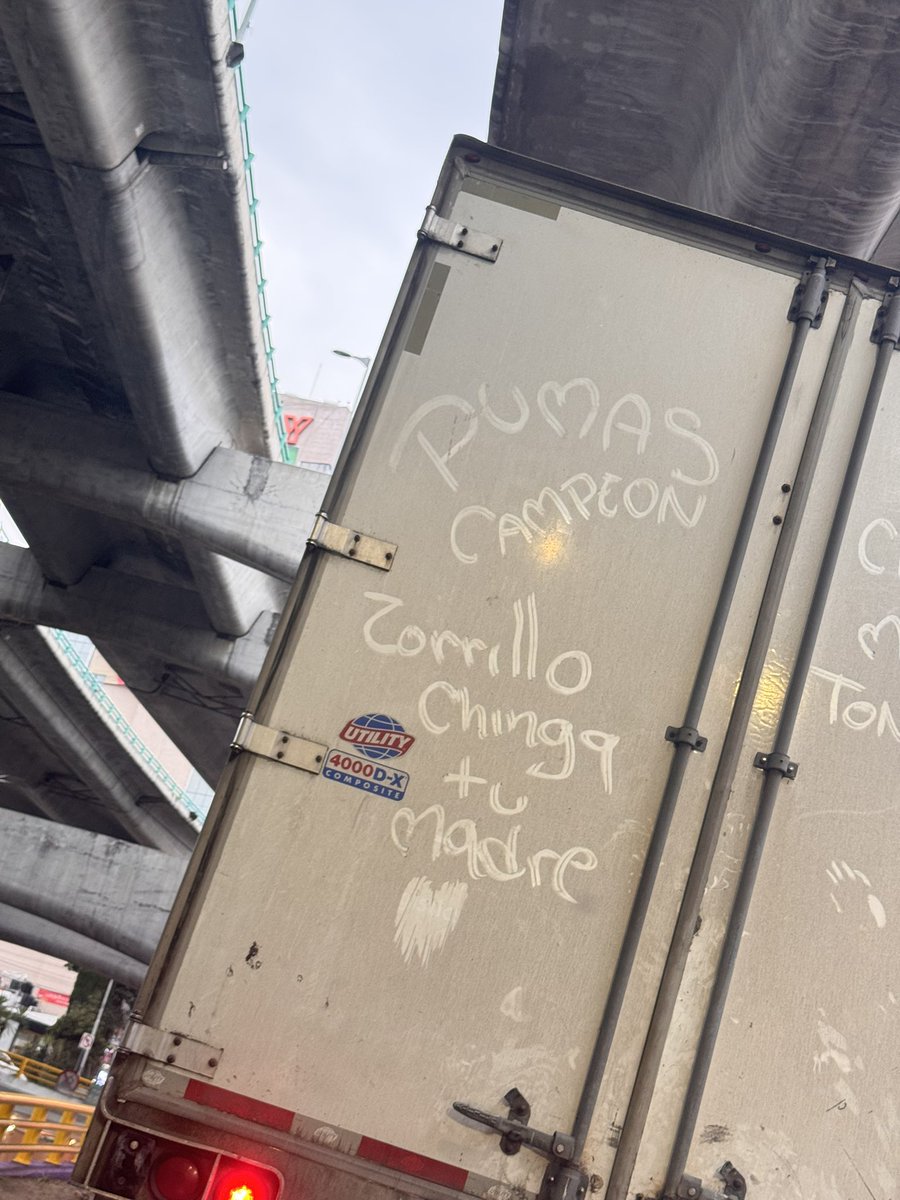 PUMAS
CAMPEON
Zorrillo
Chinga
tu
Madre
UTILITY
4000D-X
COMPOSITE